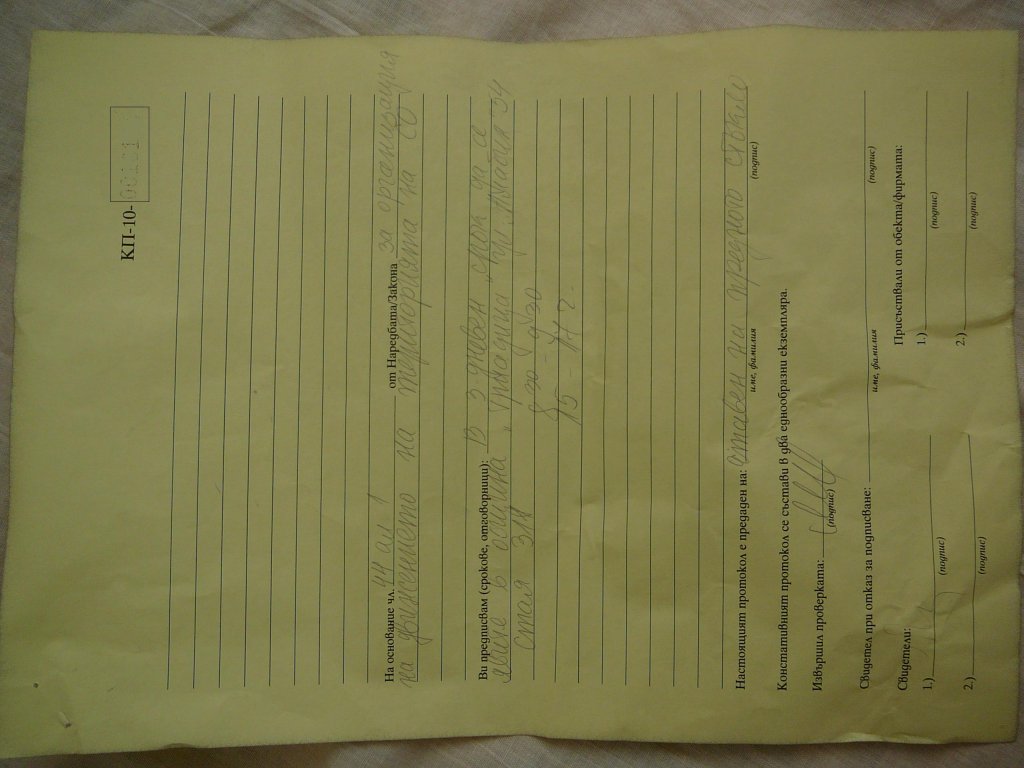 КП-10-
На основание чл. 44 ал 1 от Наредбата/Закона за организация
на движението на територията на СО
Ви предписвам (срокове, отговорници): В 3 дневен срок да се
яви в община
стая 311 8 30 - 9 30
15 - 17 ч.
Настоящият протокол е предаден на: оставен на предното стъкло
име, фамилия (подпис)
Констативният протокол се състави в два еднообразни екземпляра.
Извършил проверката:
(подпис)
Свидетел при отказ за подписване:
име, фамилия (подпис)
Свидетели: Присъствали от обекта/фирмата:
1.) 1.)
(подпис) (подпис)
2.) 2.)
(подпис) (подпис)